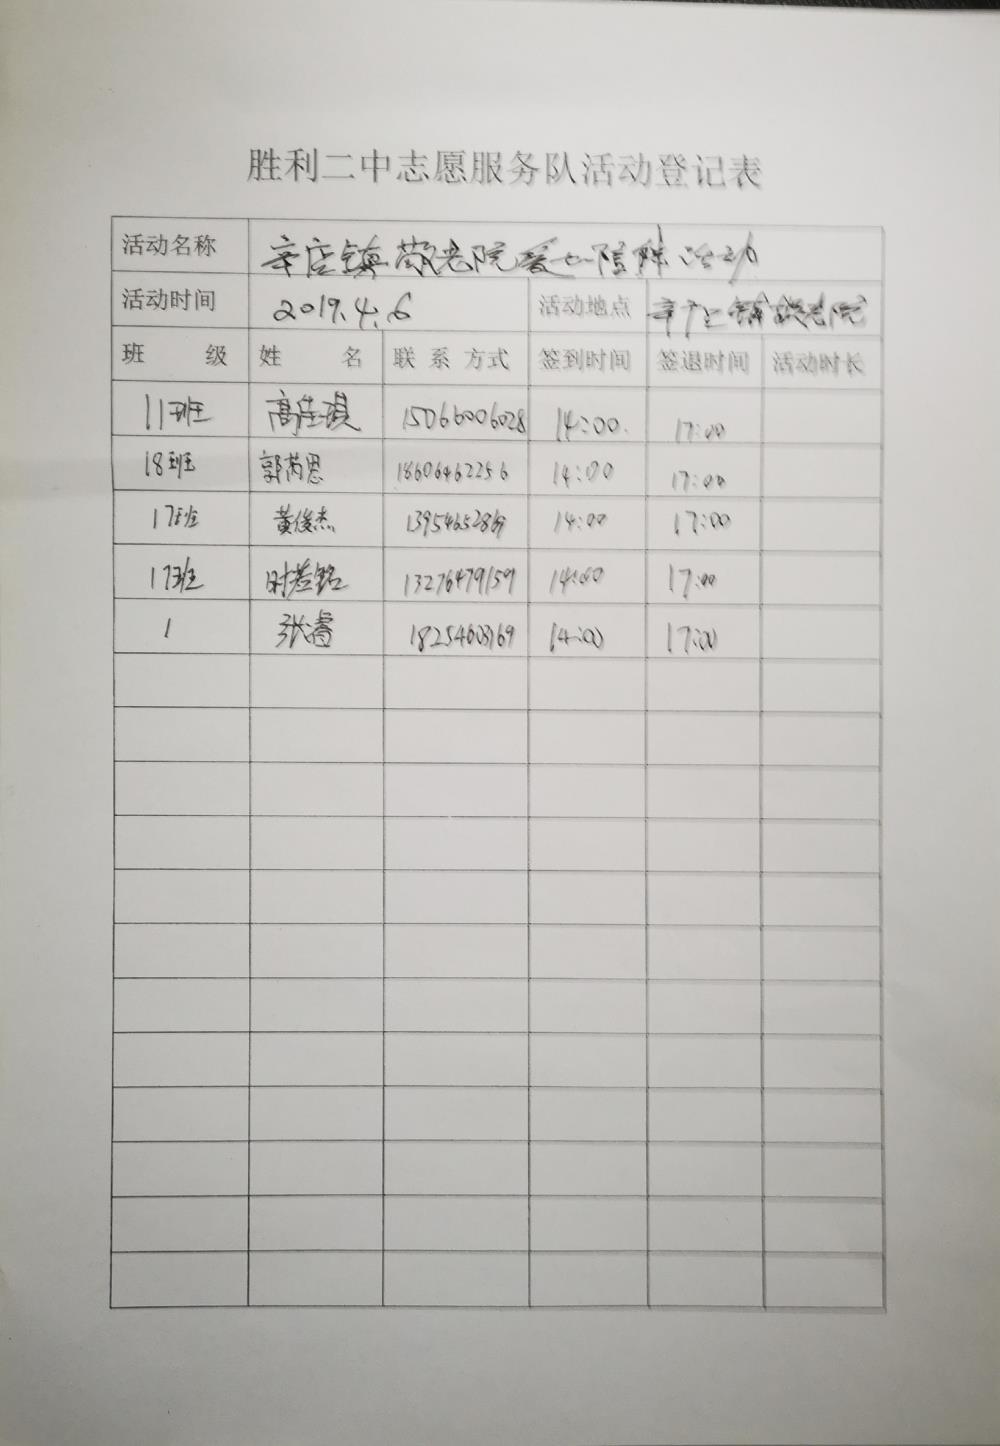 胜利二中志愿服务队活动登记表
活动名称 辛店镇敬老院爱心陪伴活动
活动时间 2019.4.6 活动地点 辛店镇敬老院
班级 姓名 联系方式 签到时间 签退时间 活动时长
11班 高佳琪 15066006028 14:00 17:00
18班 郭芮恩 18606462256 14:00 17:00
17班 黄俊杰 14:00 17:00
17班 时若铭 13276479159 14:00 17:00
1 张睿 14:00 17:00